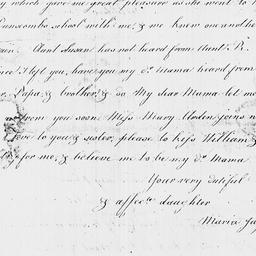 which gave me great pleasure as she went to
school with me, & we knew one another
Aunt Susan has not heard from Aunt R.
I left you, have you my dr. Mama heard from
Papa & brother, & so My dear Mama let me
from you soon Miss Mary Arden joins
love to you & sister, please to kiss William &
for me, & believe me to be my dr. Mama
Your very dutiful
& affecte. daughter
Maria